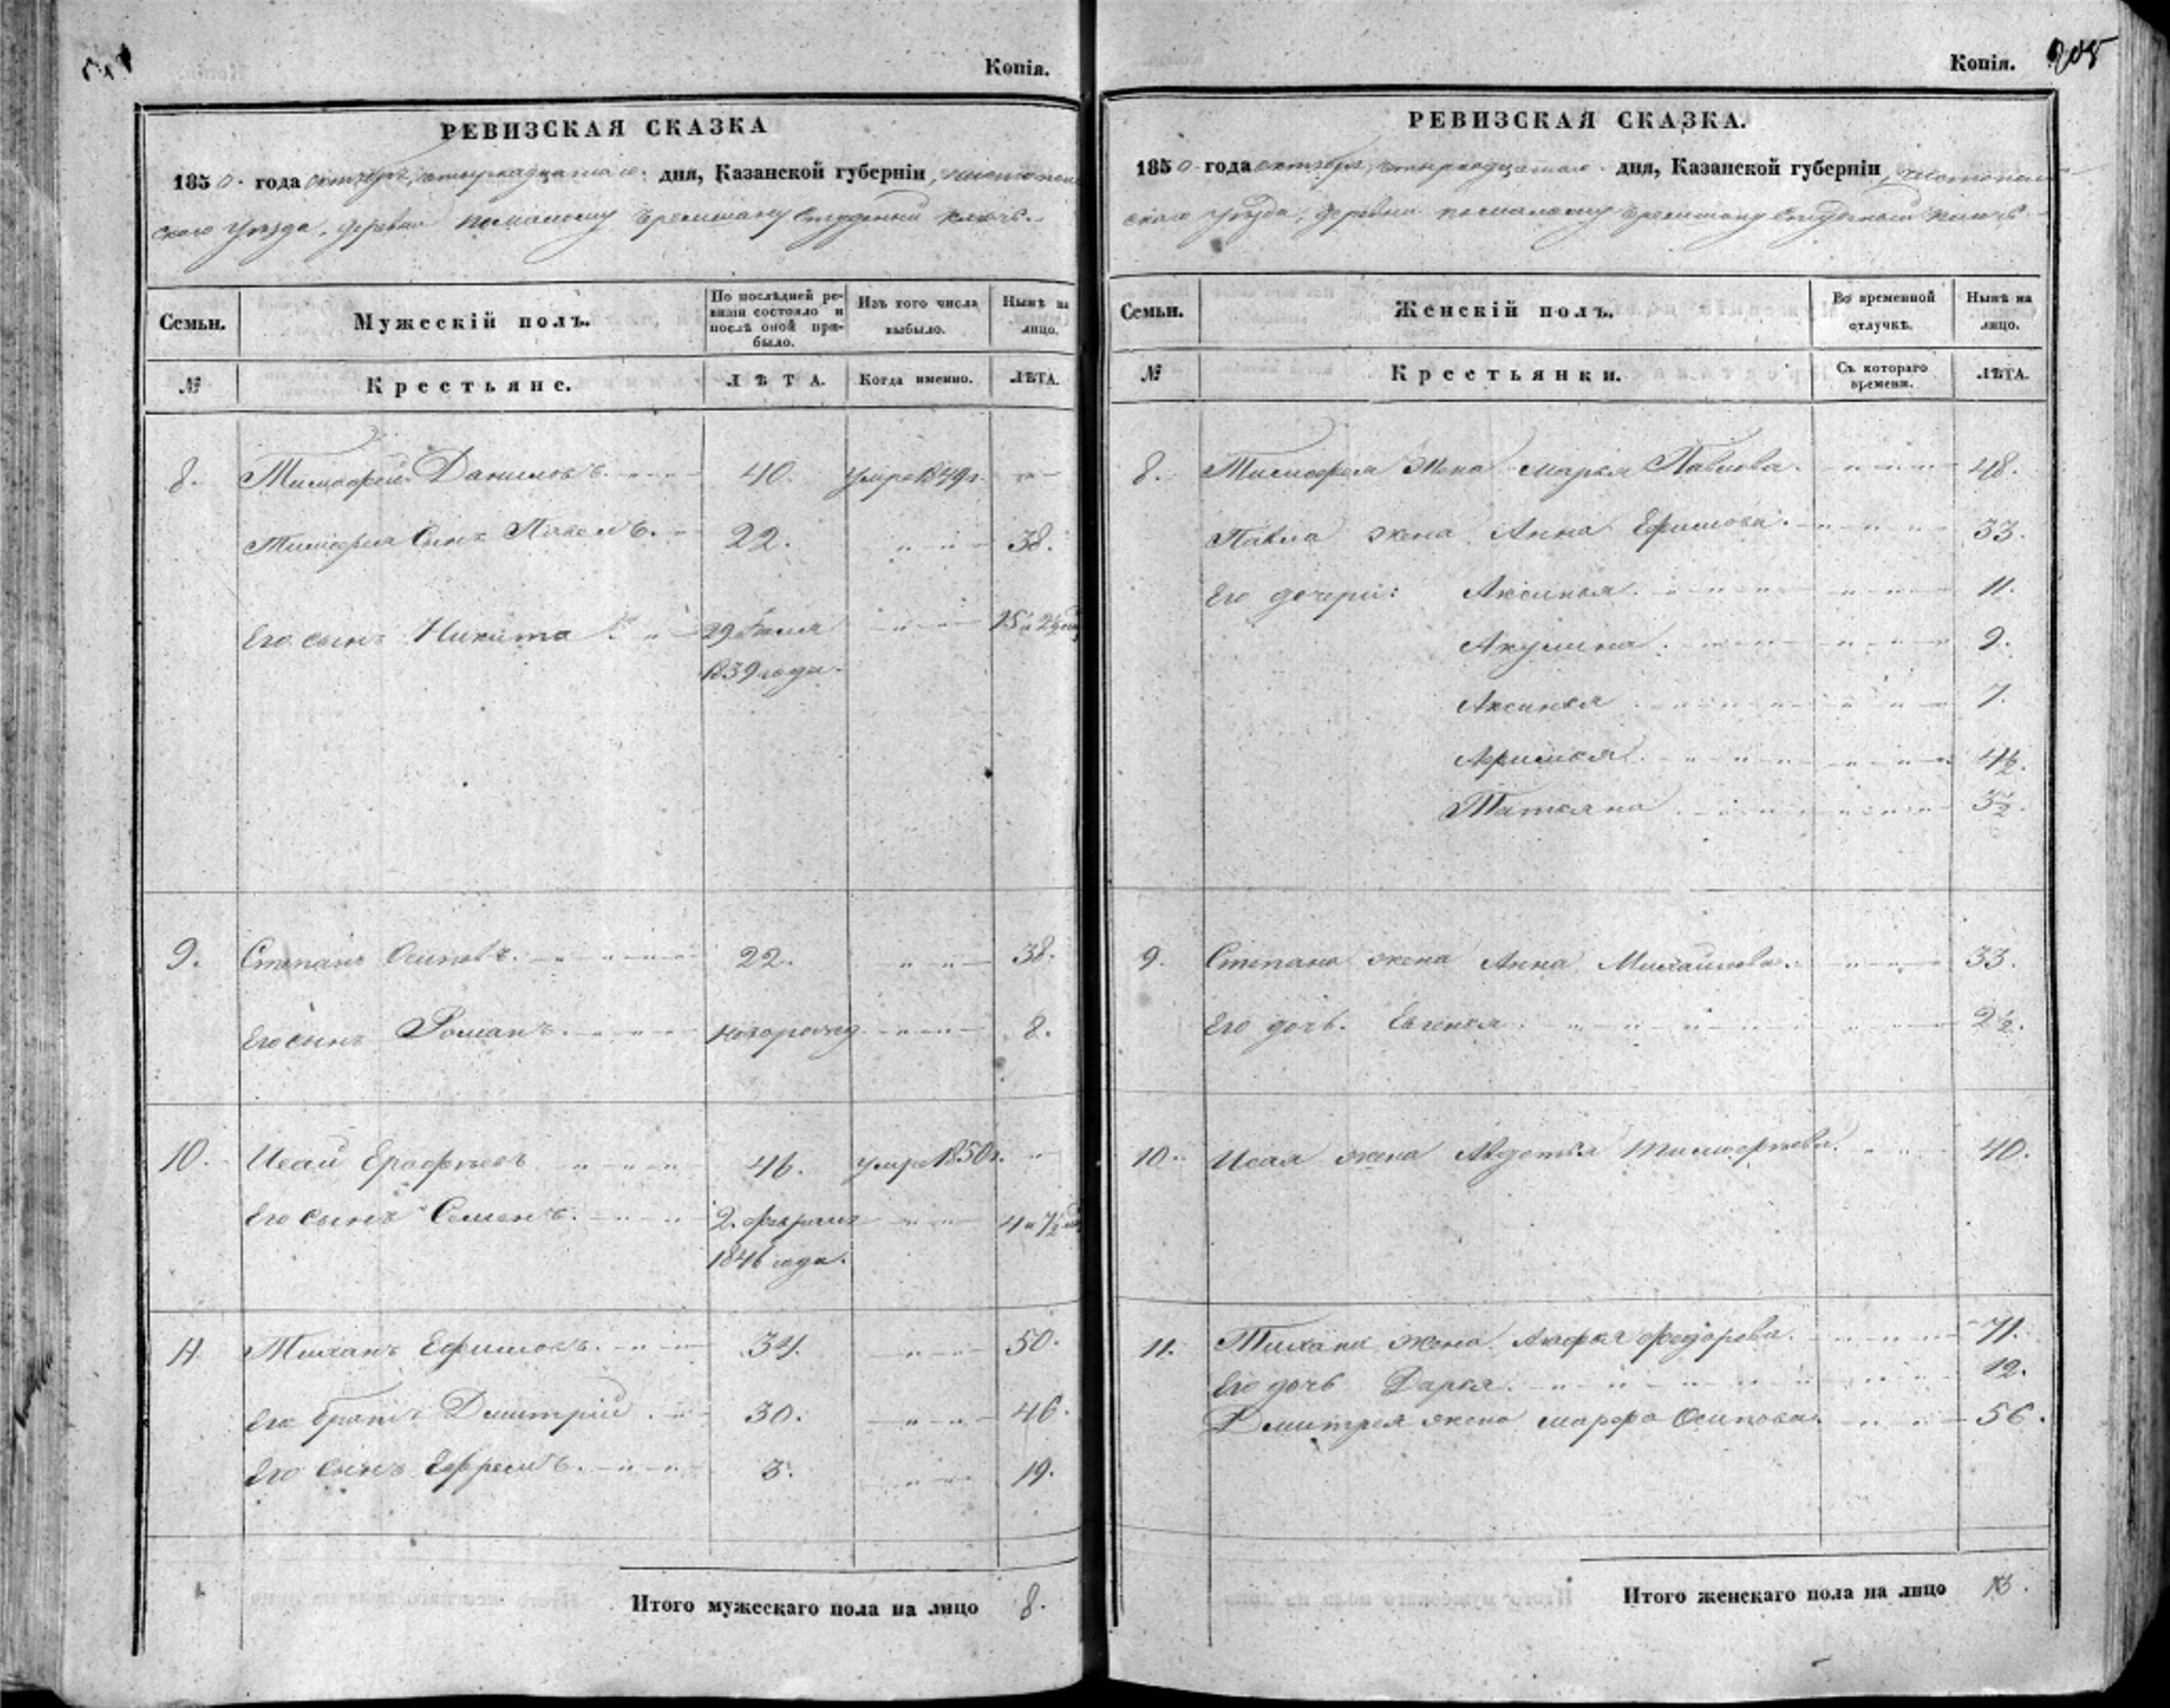 Копія.
РЕВИЗСКАЯ СКАЗКА
1850. года октября, четырнадцатаго. дня, Казанской губерніи, Чистополь-
скаго уѣзда, деревни по малому Черемшану Студеный Ключь.
Семьи. Мужескій полъ. По послѣдней ре- Изъ того числа Нынѣ на
визіи состояло и выбыло. лицо.
послѣ оной при-
было.
№ Крестьяне. ЛѢТА. Когда именно. ЛѢТА.
8. Тимофей Даниловъ. 40. умре 1849 г.
Тимофея Сынъ Павелъ. 22. 38.
Его сынъ Никита 29 1839 года.
9. Степанъ Осиповъ. 22. 38.
Его сынъ Романъ. новорожд. 8.
10. Исай Ерофѣевъ 46. умре 1850 г.
Его сынъ Семенъ. 2. февраля 4 и 7½
1846 года.
11. Тиханъ Ефимовъ. 34. 50.
Его братъ Дмитрій. 30. 46.
Его сынъ Ефремъ. 3. 19.
Итого мужескаго пола на лицо 8.
Копія. 208
РЕВИЗСКАЯ СКАЗКА.
1850 года октября, четырнадцатаго. дня, Казанской губерніи, Чистополь-
скаго уѣзда, деревни по малому Черемшану Студеный Ключь.
Семьи. Женскій полъ. Во временной Нынѣ на
отлучкѣ. лицо.
№ Крестьянки. Съ котораго ЛѢТА.
времени.
8. Тимофея Жена Марья Павлова. 48.
Павла жена Анна Ефимова. 33.
Его дочери: Аксинья. 11.
Акулина. 9.
Аксинья 7.
4½.
Татьяна 3½.
9. Степана жена Анна Михайлова. 33.
Его дочь. Евгенья. 2½.
10. Исая жена Авдотья Тимофѣева. 40.
11. Тихана жена Федорова. 71.
Его дочь Дарья. 12.
Дмитрея жена Марфа Осипова. 56.
Итого женскаго пола на лицо 13.